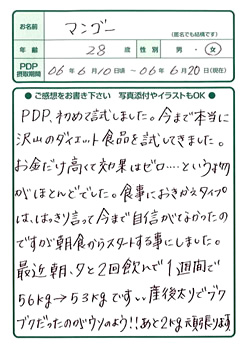 お名前 マンゴー
(匿名でも結構です)
年齢 28歳 性別 男・女
PDP摂取期間 06年6月10日頃〜06年6月20日(現在)
●ご感想をお書き下さい 写真添付やイラストもOK●
PDP、初めて試しました。今まで本当に
沢山のダイエット食品を試してきました。
お金だけ高くて効果はゼロ…という物
がほとんどでした。食事におきかえタイプ
は、はっきり言って今まで自信がなかったの
ですが朝食からスタートする事にしました。
最近朝、夕と2回飲んで1週間で
56kg→53kgです!!産後太りでブク
ブクだったのがウソのよう!!あと2kg頑張ります